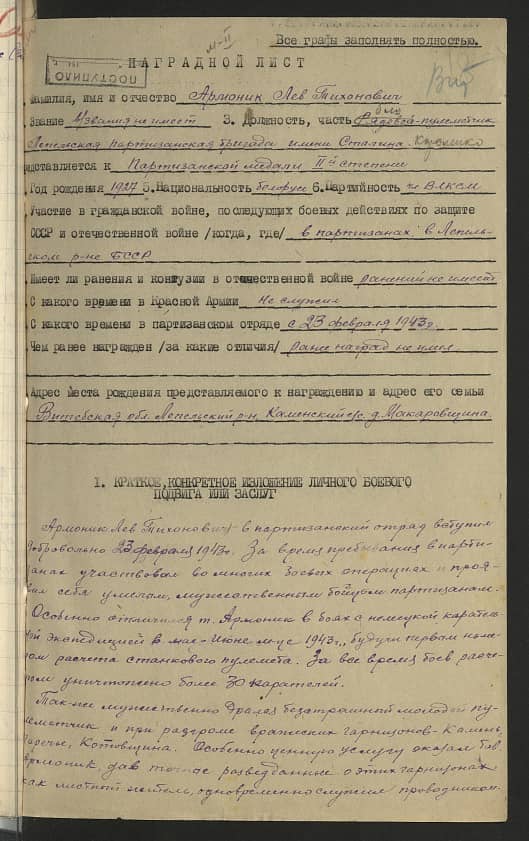 м-II
Все графы заполнять полностью.
НАГРАДНОЙ ЛИСТ
ПОСТУПИЛО
Фамилия, имя и отчество Армоник Лев Тихонович
Звание Звания не имеет 3. Должность, часть Рядовой-пулеметчик
Лепельская партизанская бригада имени Сталина.
дставляется к Партизанской медали IIой степени
Год рождения 1927 5. Национальность белорус 6. Партийность чл ВЛКСМ
Участие в гражданской войне, последующих боевых действиях по защите
СССР и отечественной войне /когда, где/ в партизанах в Лепель-
ском р-не БССР
Имеет ли ранения и контузии в отечественной войне ранений не имеет
С какого времени в Красной Армии не служил
С какого времени в партизанском отряде с 23 февраля 1943г.
Чем ранее награжден /за какие отличия/ ранее наград не имел.
Адрес места рождения представляемого к награждению и адрес его семьи
Витебская обл. Лепельский р-н, Каменский с/с д. Макаровщина.
1. КРАТКОЕ, КОНКРЕТНОЕ ИЗЛОЖЕНИЕ ЛИЧНОГО БОЕВОГО
ПОДВИГА ИЛИ ЗАСЛУГ
Армоник Лев Тихонович в партизанский отряд вступил
добровольно 23 февраля 1943г. За время пребывания в парти-
занах участвовал во многих боевых операциях и проя-
вил себя умелым, мужественным бойцом партизаном.
Особенно отличился т. Армоник в боях с немецкой каратель-
ной экспедицией в мае-июне м-це 1943г., будучи первым номе-
ром расчета станкового пулемета. За все время боев расче-
том уничтожено более 30 карателей.
Так-же мужественно дрался безстрашный молодой пу-
леметчик и при разгроме вражеских гарнизонов-Камень,
Заречье, Котовщина. Особенно ценную услугу оказал тов.
Армоник, дав точные разведданные о этих гарнизонах
как местный житель, одновременно служил проводником.